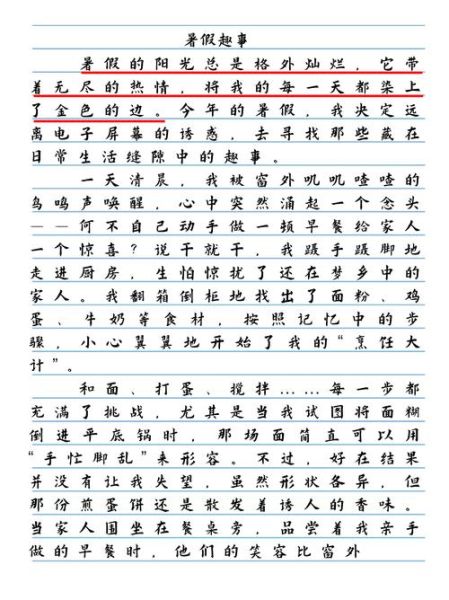 暑假趣事
暑假的阳光总是格外灿烂，它带
着无尽的热情，将我的每一天都染上
了金色的边。今年的暑假，我决定远
离电子屏幕的诱惑，去寻找那些藏在
日常生活缝隙中的趣事。
一天清晨，我被窗外叽叽喳喳的
鸟鸣声唤醒，心中突然涌起一个念头
——何不自己动手做一顿早餐给家人
一个惊喜？说干就干，我蹑手蹑脚地
走进厨房，生怕惊扰了还在梦乡中的
家人。我翻箱倒柜地找出了面粉、鸡
蛋、牛奶等食材，按照记忆中的步
骤，小心翼翼地开始了我的“烹饪大
计”。
和面、打蛋、搅拌……每一步都
充满了挑战，尤其是当我试图将面糊
倒进平底锅时，那场面简直可以用
“手忙脚乱”来形容。不过，好在结果
并没有让我失望，虽然形状各异，但
那份煎蛋饼还是散发着诱人的香味。
当家人围坐在餐桌旁，品尝着我亲手
做的早餐时，他们的笑容比窗外